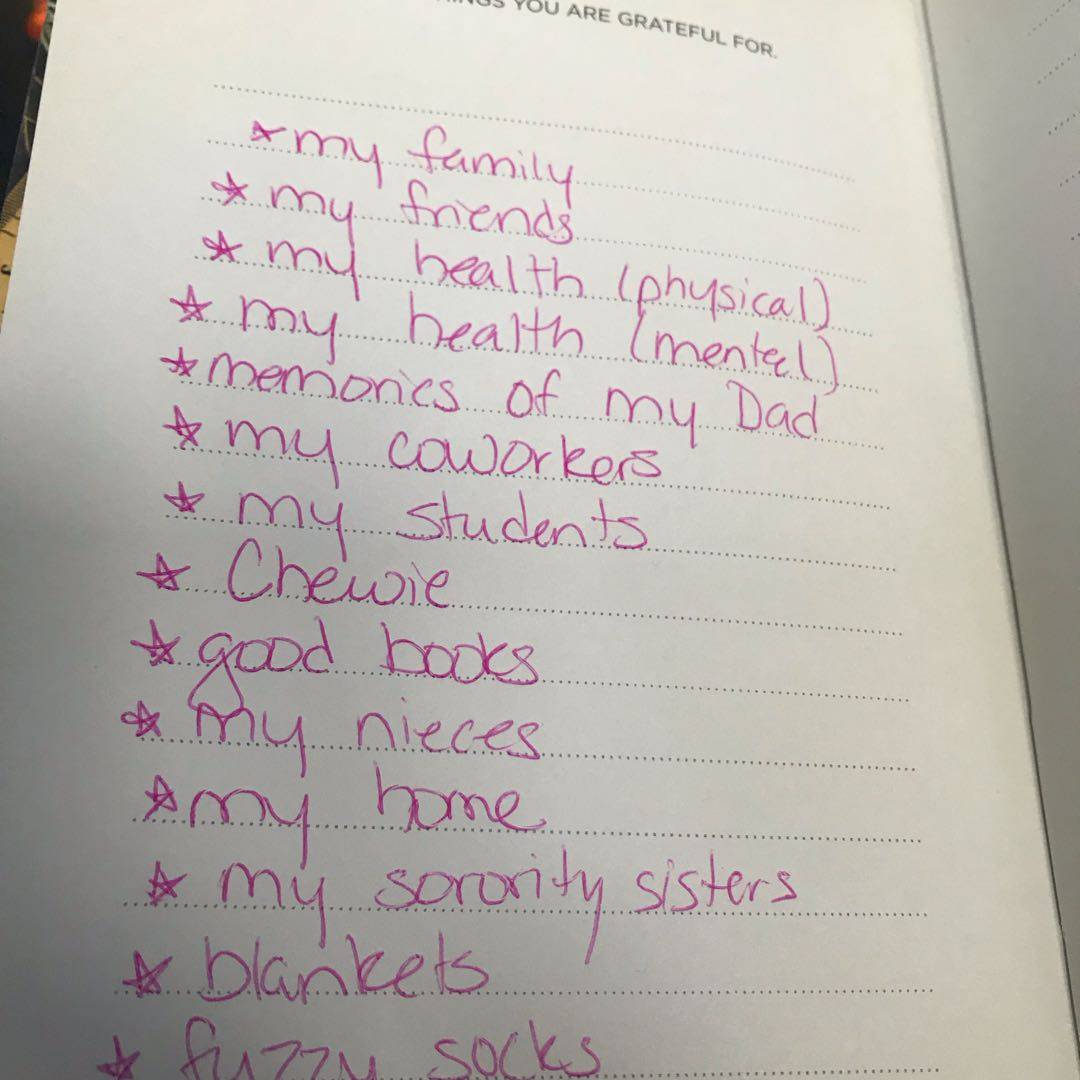 YOU ARE GRATEFUL FOR.
☆ my family
☆ my friends
☆ my health (physical)
☆ my health (mental)
☆ memories of my Dad
☆ my coworkers
☆ my students
☆ Chewie
☆ good books
☆ my nieces
☆ my home
☆ my sorority sisters
☆ blankets
☆ fuzzy socks